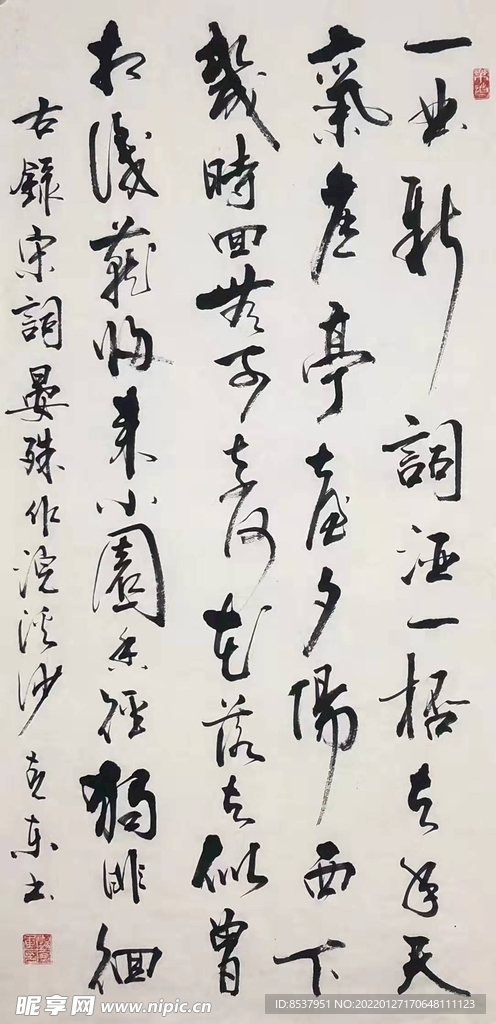 一曲新詞酒一桮去年天
氣舊亭臺夕陽西下
幾時回無可奈何花落去似曾
相識燕歸來小園香徑獨徘徊
右錄宋詞晏殊作浣溪沙
昵享网 www.nipic.cn
ID:8537951 NO:20220127170648111123